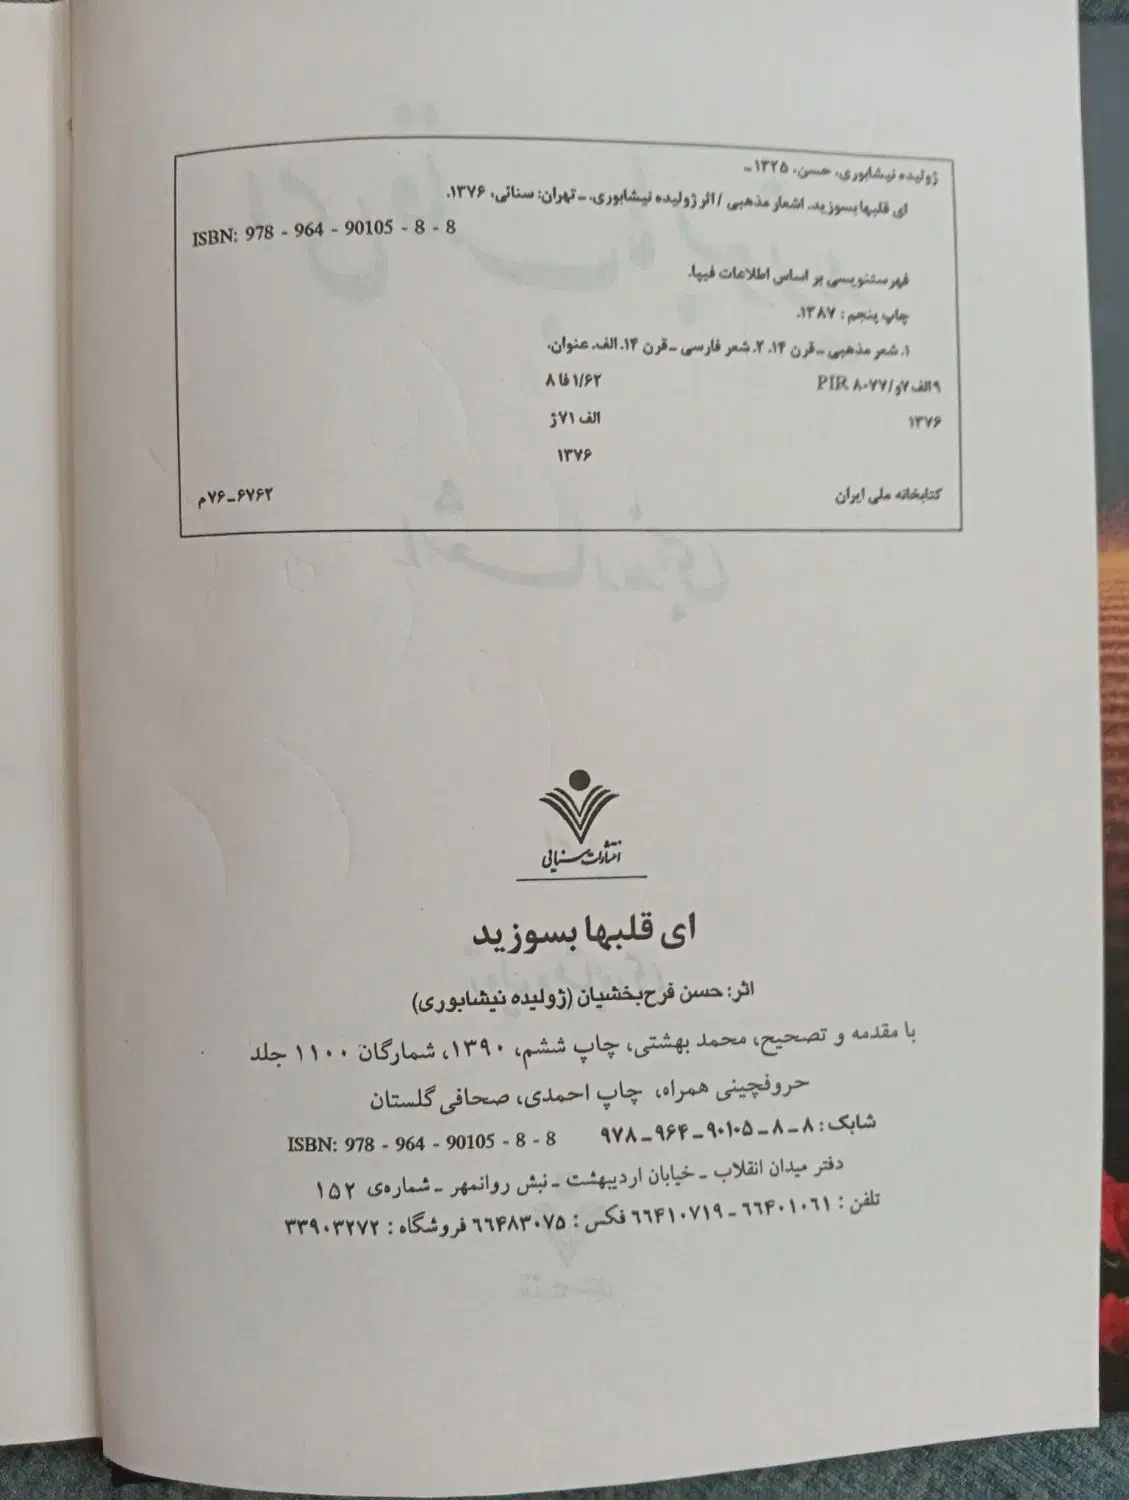 ژولیده نیشابوری، حسن، ۱۳۲۵ـ
ای قلبها بسوزید. اشعار مذهبی / اثر ژولیده نیشابوری. ـ تهران: سنائی، ۱۳۷۶.
ISBN: 978 - 964 - 90105 - 8 - 8
فهرستنویسی بر اساس اطلاعات فیپا.
چاپ پنجم: ۱۳۸۷.
۱. شعر مذهبی ـ قرن ۱۴. ۲. شعر فارسی ـ قرن ۱۴. الف. عنوان.
۹الف۷و/PIR ۸۰۷۷ ۸فا۱/۶۲
۱۳۷۶ الف۷۱ژ
۱۳۷۶
کتابخانه ملی ایران ۶۷۶۲ـ۷۶م
انتشارات سنایی
ای قلبها بسوزید
اثر: حسن فرح‌بخشیان (ژولیده نیشابوری)
با مقدمه و تصحیح، محمد بهشتی، چاپ ششم، ۱۳۹۰، شمارگان ۱۱۰۰ جلد
حروفچینی همراه، چاپ احمدی، صحافی گلستان
شابک: ۸ـ۸ـ۹۰۱۰۵ـ۹۶۴ـ۹۷۸ ISBN: 978 - 964 - 90105 - 8 - 8
دفتر میدان انقلاب ـ خیابان اردیبهشت ـ نبش روانمهر ـ شماره‌ی ۱۵۲
تلفن: ۶۶۴۰۱۰۶۱ـ۶۶۴۱۰۷۱۹ فکس: ۶۶۴۸۳۰۷۵ فروشگاه: ۳۳۹۰۳۲۷۲